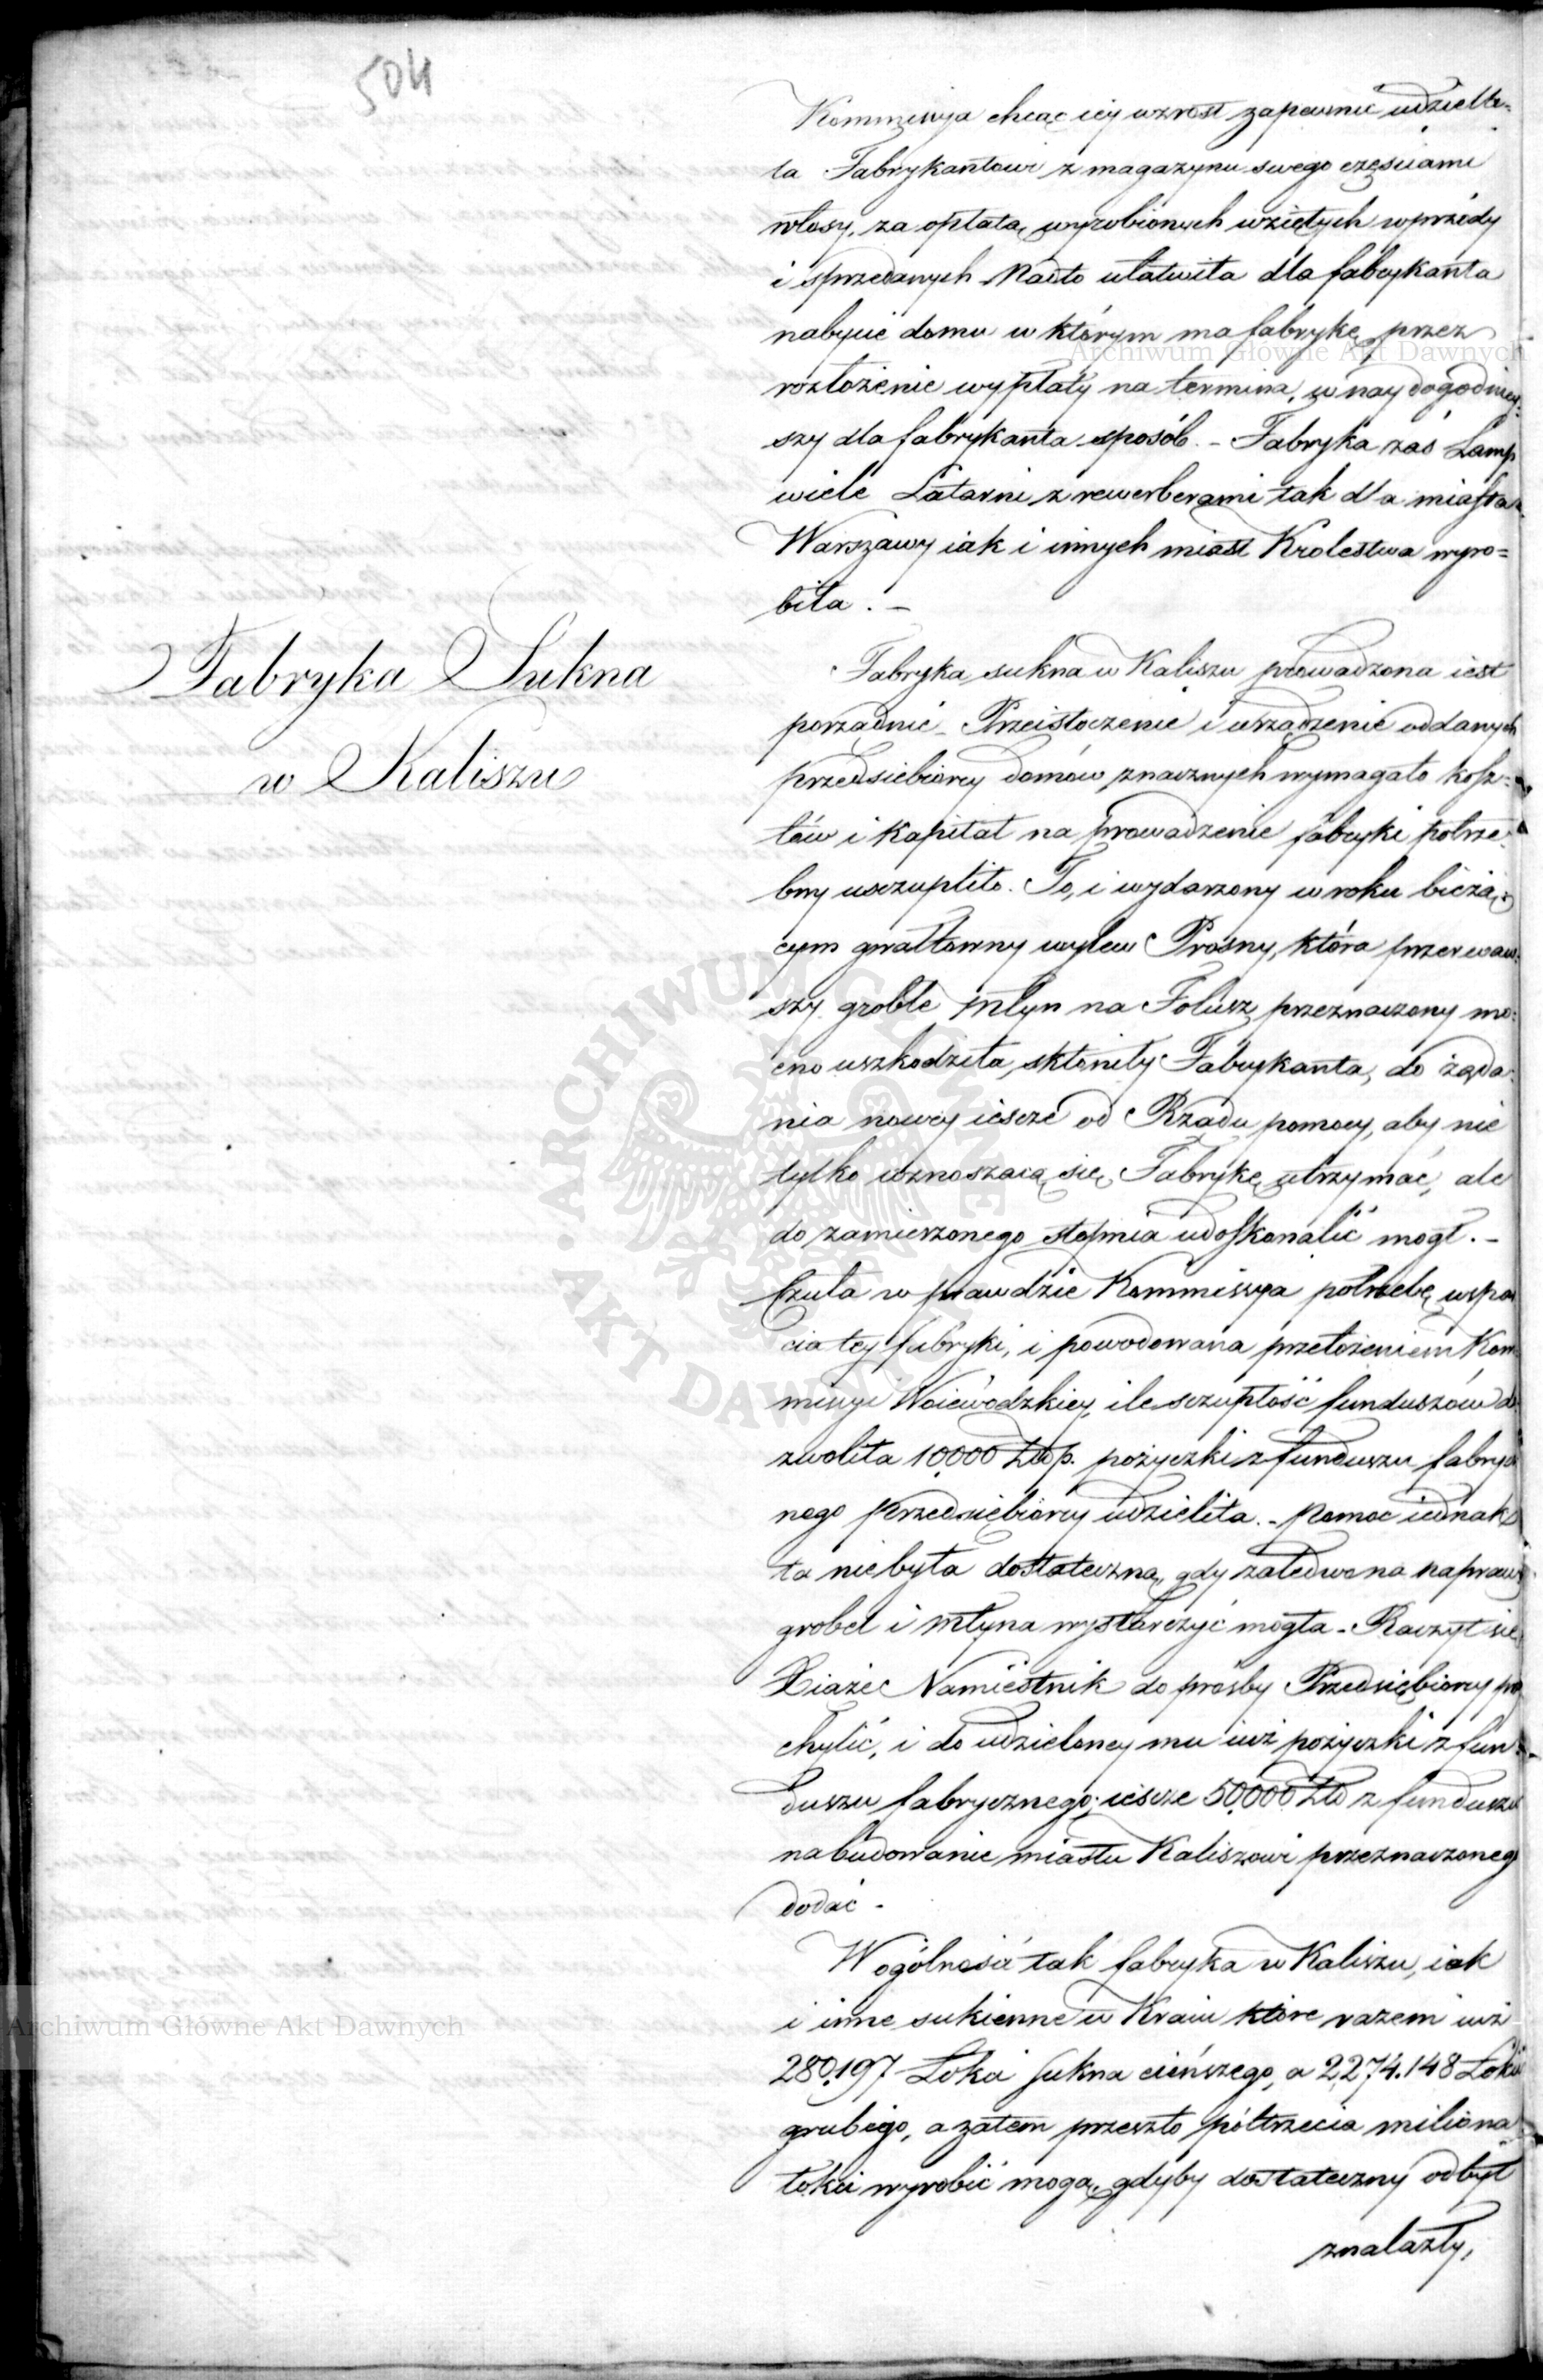 504
Kommissya chcąc iey wzrost zapewnić udzieli-
ła Fabrykantowi z magazynu swego częściami
włosy, za opłatą wyrobionych wziętych wprzódy
i sprzedanych Nadto ułatwiła dla fabrykanta
nabycie domu w którym ma fabrykę przez
rozłożenie wypłaty na termina, w naydogodniey-
szy dla fabrykanta sposób. - Fabryka zaś Lamp
wiele Latarni z rewerberami tak dla miasta
Warszawy iak i innych miast Krolestwa wyro=
biła. -
Fabryka Sukna
w Kaliszu
Fabryka sukna w Kaliszu prowadzona iest
porządnie - Przeistoczenie i urządzenie oddanych
przedsiebiorcy domów znacznych wymagało kosz-
tów i kapitał na prowadzenie fabryki potrze-
bny uszczupliło. To, i wydarzony w roku bieżą-
cym gwałtowny wylew Prosny, która przerwaw-
szy groble młyn na Folusz przeznaczony mo-
cno uszkodziła, skłoniły Fabrykanta, do żąda-
nia nowey ieszcze od Rządu pomocy, aby nie
tylko wznoszącą się Fabrykę utrzymać, ale
do zamierzonego stopnia udoskonalić mógł. -
Czuła w prawdzie Kommissya potrzebę wspar
cia tey fabryki, i powodowana przełożeniem Kom
missyi Woiewodzkiey, ile szczupłość funduszów do
zwoliła 10,000 Złp. pożyczki z funduszu fabrycz
nego Przedsiębiorcy udzieliła. - Pomoc iednak
ta niebyła dostateczną, gdy zaledwo na naprawę
grobel i młyna wystarczyć mogła - Raczył się
Xiąże Namiestnik do prośby Przedsiębiorcy przy
chylić, i do udzieloney mu iuż pożyczki z fun-
duszu fabrycznego, ieszcze 50,000 Zło z funduszu
na budowanie miastu Kaliszowi przeznaczoneg
dodać -
W ogólności tak fabryka w Kaliszu, iak
i inne sukienne w Kraiu które razem iuż
280,197 Łokci sukna cieńszego, a 2,274,148 Łokci
grubego, a zatem przeszło półtrzecia miliona
łokci wyrobić mogą, gdyby dostateczny odbyt
znalazły,
Archiwum Główne Akt Dawnych
Archiwum Główne Akt Dawnych
ARCHIWUM GŁÓWNE AKT DAWNYCH